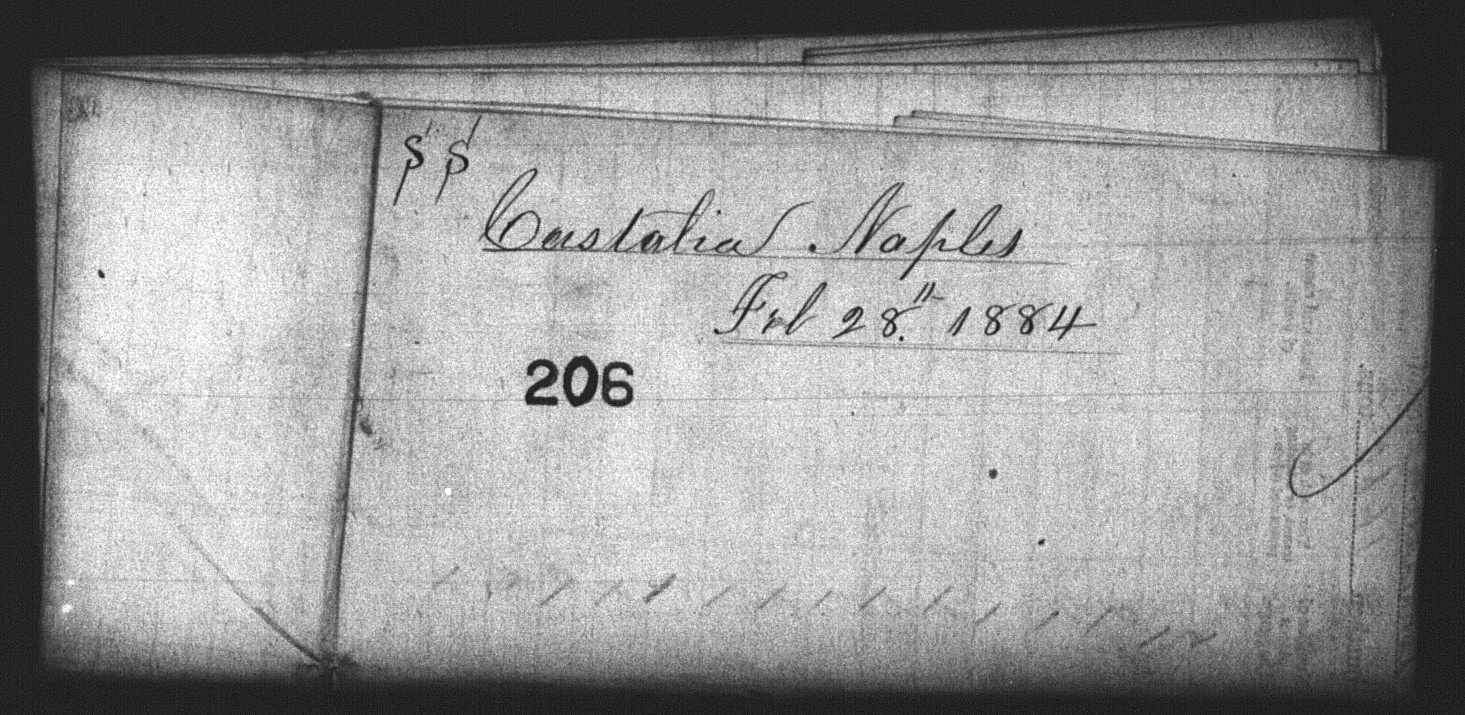 S S
Castalia Naples
Feb 28" 1884
206